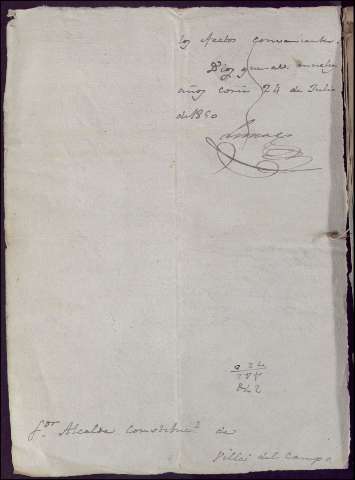 los efectos convenientes.
Dios gue á V. muchos
años Coria 24 de Julio
de 1850
Sor Alcalde Constitucl de
Villa del Campo